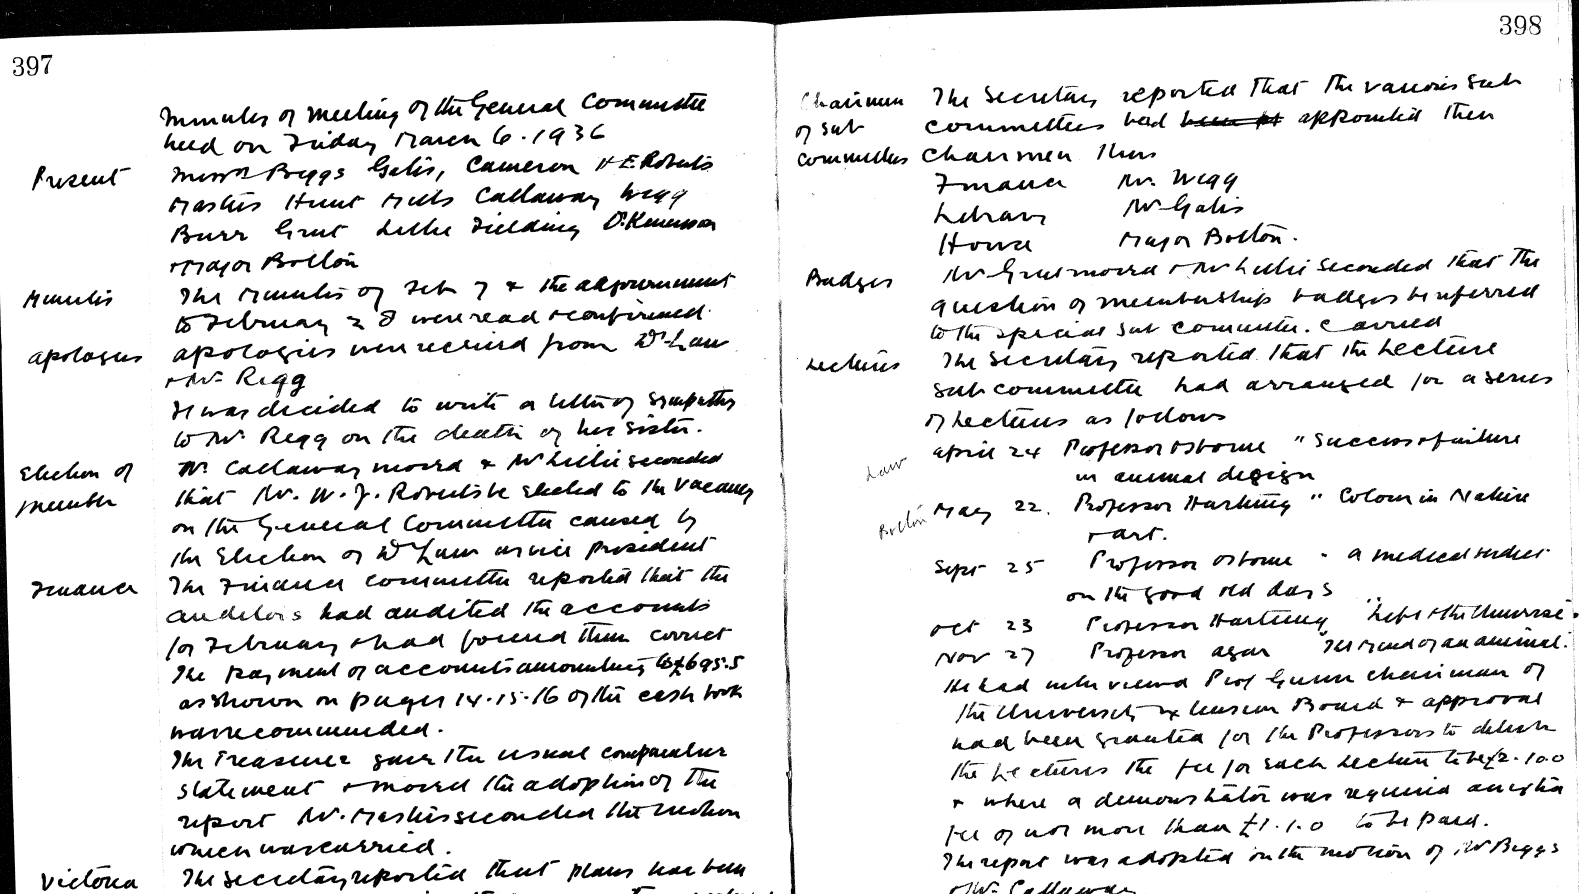 397
Minutes of Meeting of the General Committee
held on Friday March 6. 1936
Present Messrs Beggs Gates, Cameron H E Roberts
Masters Hunt Mills Callaway Wegg
Burr Grut Lellie Fielding Dr.
+ Major Bolton
Minutes The Minutes of Feb 7 & the adjournment
to February 28 were read & confirmed.
Apologies Apologies were received from Dr Law
+ Mr. Regg
It was decided to write a letter of sympathy
to Mr. Regg on the death of her sister.
Election of Mr. Callaway moved & Mr Lellie seconded
member that Mr. W. J. Roberts be elected to the vacancy
on the General Committee caused by
the Election of Dr Law as vice President
Finance The Finance committee reported that the
auditors had audited the accounts
for February & had found them correct
The payment of accounts amounting to £695.5
as shown on pages 14.15.16 of the cash book
was recommended.
The Treasurer gave the usual comparative
statement & moved the adoption of the
report Mr. Masters seconded the motion
which was carried.
Victoria The Secretary reported that plans had been
398
Chairmen The Secretary reported that the various Sub
of Sub committees had been appointed their
Committees Chairmen thus
Finance Mr. Wegg
Library Mr Gates
House Major Bolton.
Badges Mr Grut moved & Mr Lellie seconded that the
question of membership badges be referred
to the special sub committee. Carried
Lectures The Secretary reported that the Lecture
Sub committee had arranged for a series
of Lectures as follows
Law April 24 Professor Osborne "Success & failure
in animal design
Bolton May 22. Professor Hartung "Colour in Nature
& art.
Sept 25 Professor Osborne "A medical verdict
on the good old days
Oct 23 Professor Hartung "Life & the Universe.
Nov 27 Professor Agar "The Mind of an animal.
He had interviewed Prof Gunn chairman of
the University Extension Board & approval
had been granted for the Professors to deliver
the Lectures the fee for each Lecture to be £2.10.0
& where a demonstrator was required an extra
fee of not more than £1.1.0 to be paid.
The report was adopted on the motion of Mr Beggs
& Mr. Callaway